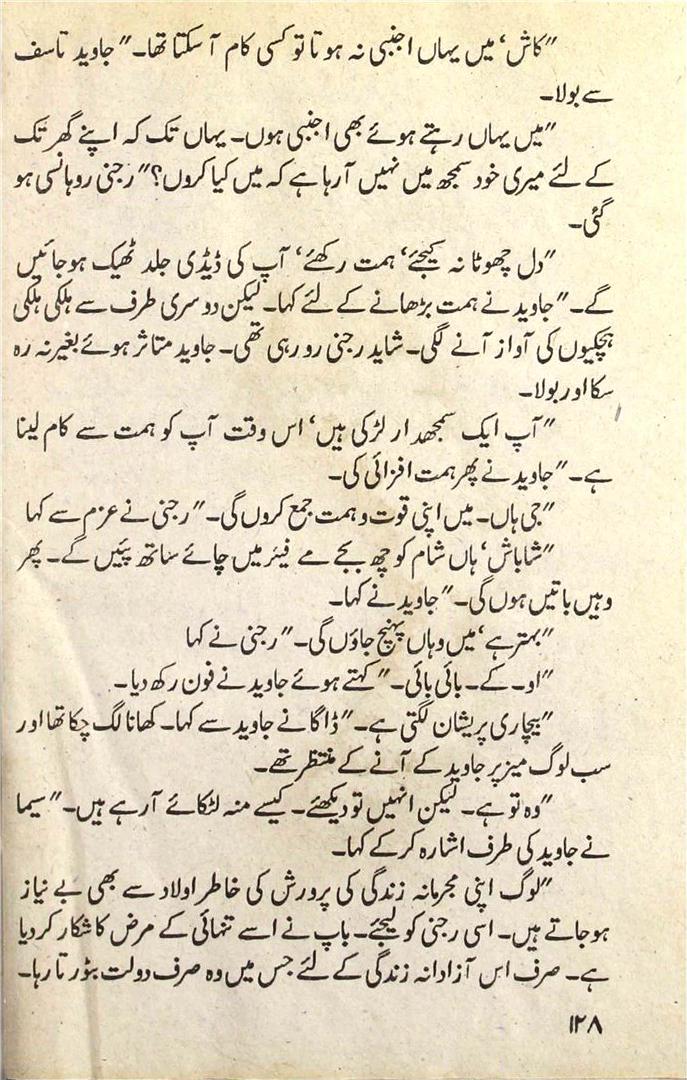 "کاش، میں یہاں اجنبی نہ ہوتا تو کسی کام آ سکتا تھا۔" جاوید تاسف
سے بولا۔
"میں یہاں رہتے ہوئے بھی اجنبی ہوں۔ یہاں تک کہ اپنے گھر تک
کے لئے میری خود سمجھ میں نہیں آرہا ہے کہ میں کیا کروں؟" رجنی روہانسی ہو
گئی۔
"دل چھوٹا نہ کیجئے، ہمت رکھئے، آپ کی ڈیڈی جلد ٹھیک ہوجائیں
گے۔" جاوید نے ہمت بڑھانے کے لئے کہا۔ لیکن دوسری طرف سے ہلکی ہلکی
ہچکیوں کی آواز آنے لگی۔ شاید رجنی رو رہی تھی۔ جاوید متاثر ہوئے بغیر نہ رہ
سکا اور بولا۔
"آپ ایک سمجھدار لڑکی ہیں، اس وقت آپ کو ہمت سے کام لینا
ہے۔" جاوید نے پھر ہمت افزائی کی۔
"جی ہاں۔ میں اپنی قوت و ہمت جمع کروں گی۔" رجنی نے عزم سے کہا
"شاباش، ہاں شام کو چھ بجے مے فیئر میں چائے ساتھ پئیں گے۔ پھر
وہیں باتیں ہوں گی۔" جاوید نے کہا۔
"بہتر ہے، میں وہاں پہنچ جاؤں گی۔" رجنی نے کہا
"او۔ کے۔ بائی بائی۔" کہتے ہوئے جاوید نے فون رکھ دیا۔
"بیچاری پریشان لگتی ہے۔" ڈاگا نے جاوید سے کہا۔ کھانا لگ چکا تھا اور
سب لوگ میز پر جاوید کے آنے کے منتظر تھے۔
"وہ تو ہے۔ لیکن انہیں تو دیکھئے۔ کیسے منہ لٹکائے آرہے ہیں۔" سیما
نے جاوید کی طرف اشارہ کرکے کہا۔
"لوگ اپنی مجرمانہ زندگی کی پرورش کی خاطر اولاد سے بھی بے نیاز
ہوجاتے ہیں۔ اسی رجنی کو لیجئے۔ باپ نے اسے تنہائی کے مرض کا شکار کردیا
ہے۔ صرف اس آزادانہ زندگی کے لئے جس میں وہ صرف دولت بٹورتا رہا۔
۱۲۸